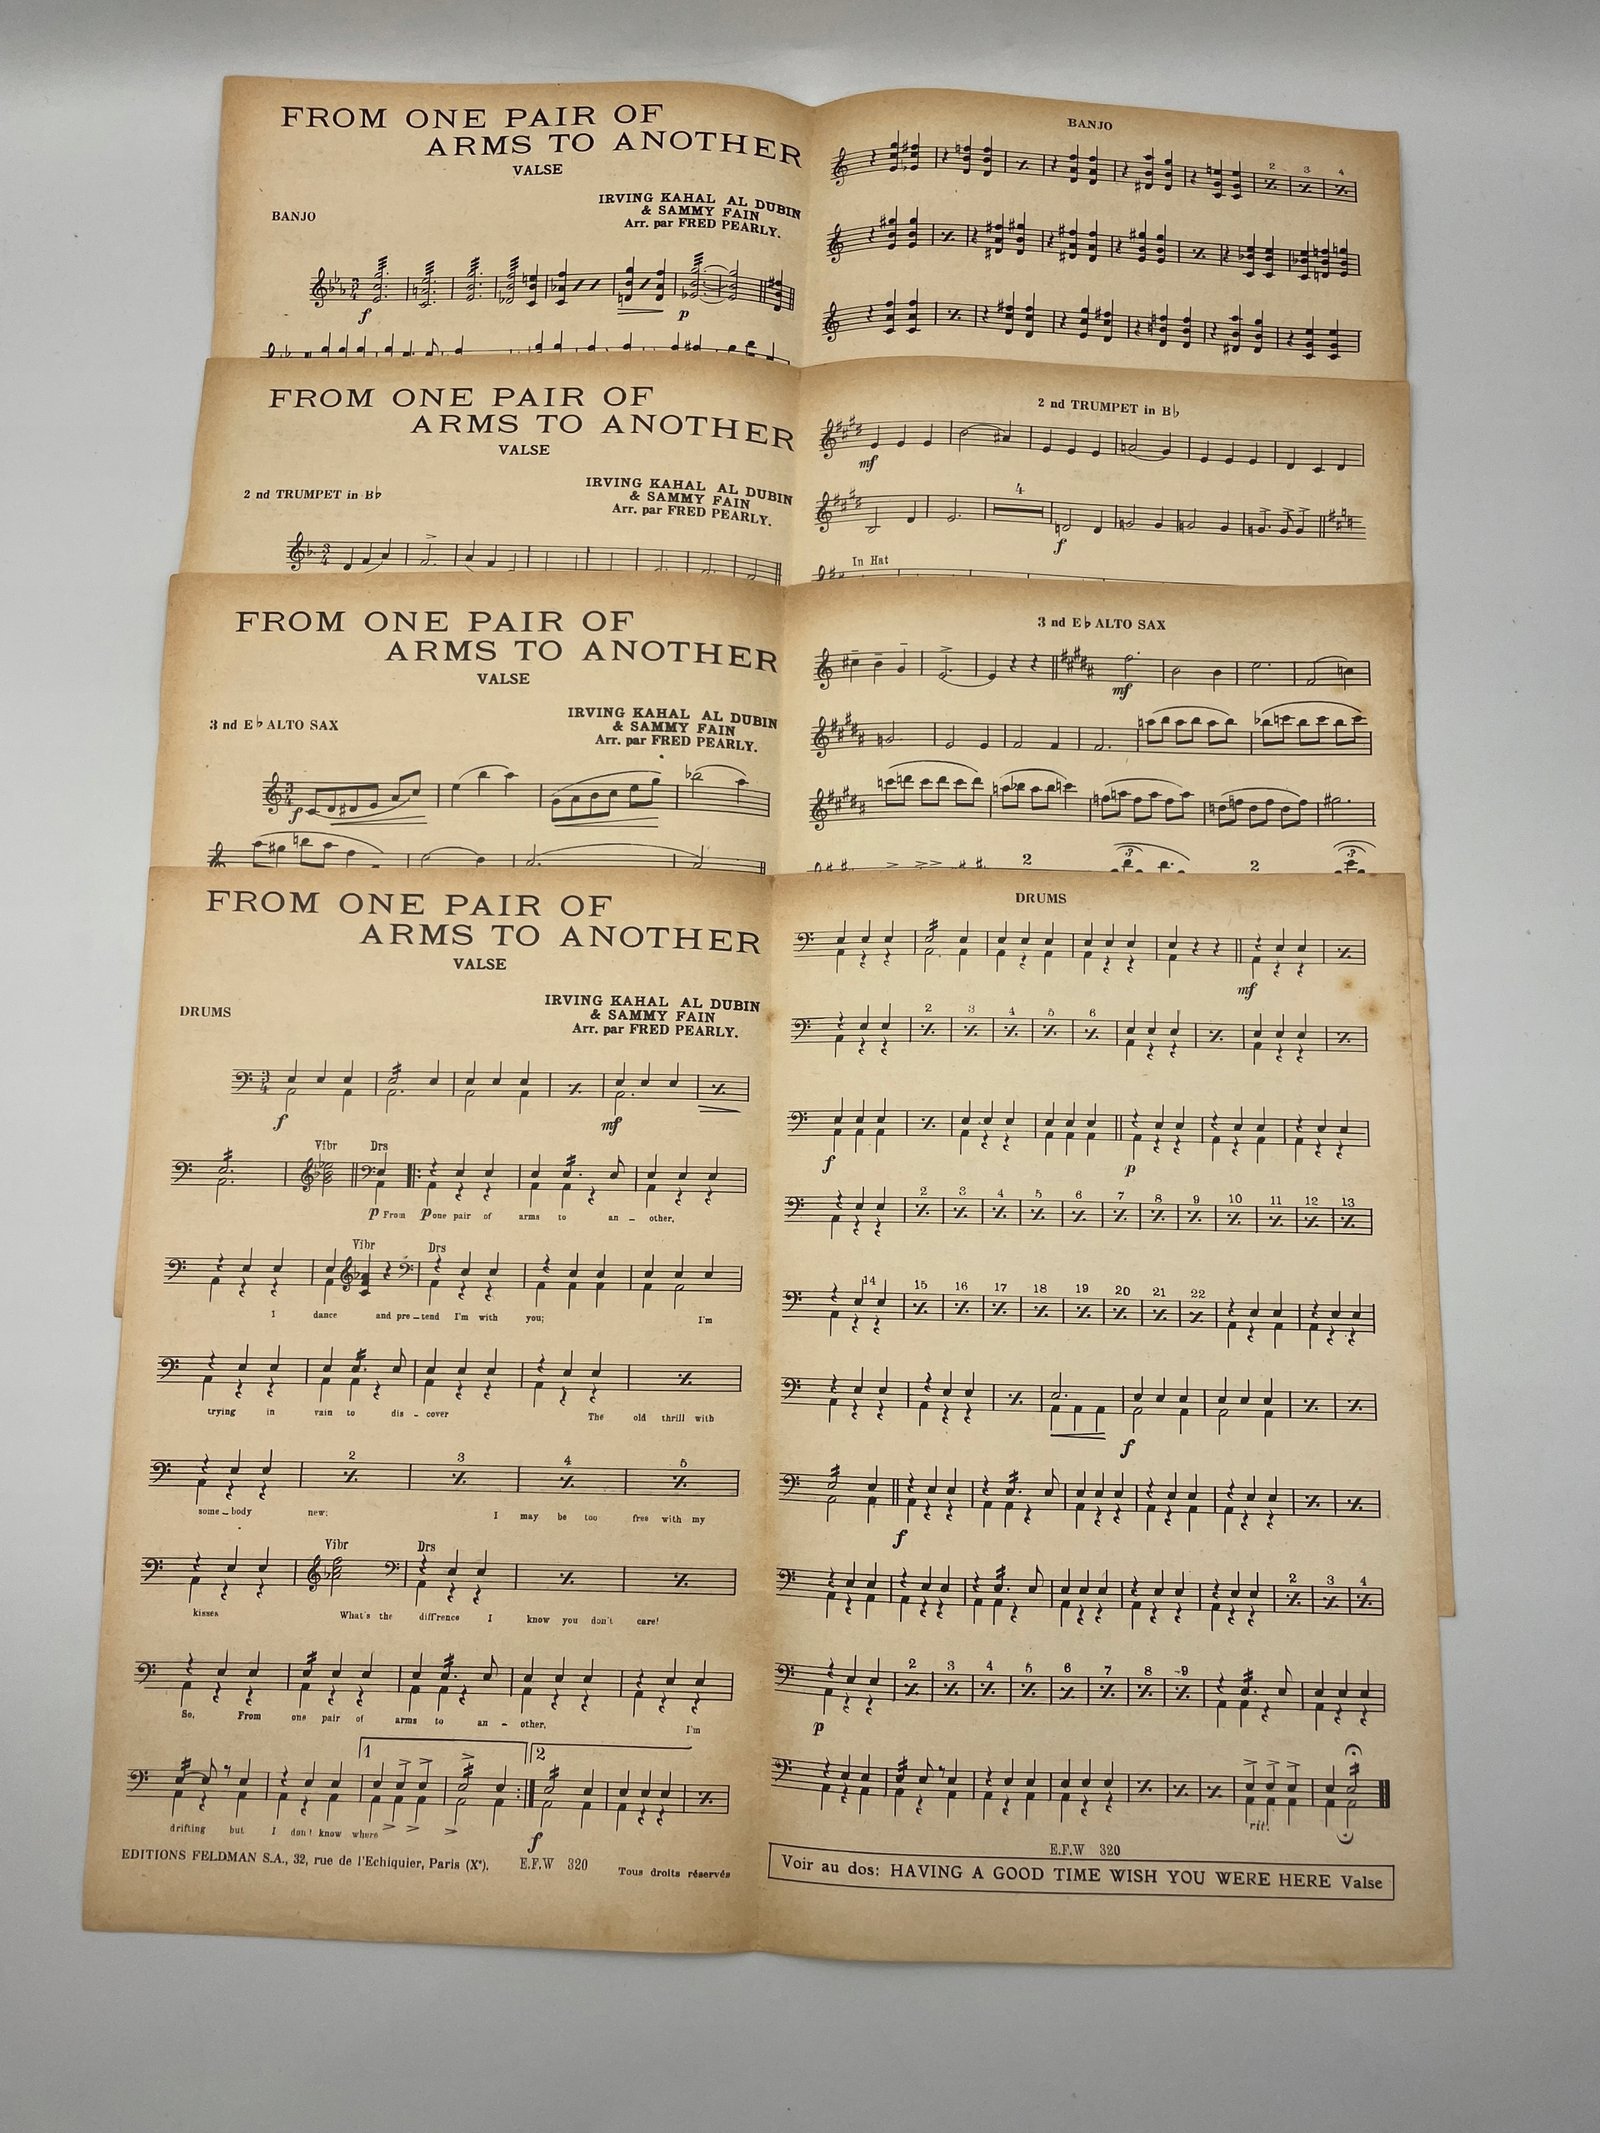 FROM ONE PAIR OF
ARMS TO ANOTHER
VALSE
IRVING KAHAL AL DUBIN
& SAMMY FAIN
Arr. par FRED PEARLY.
BANJO
f
p
BANJO
2
3
4
FROM ONE PAIR OF
ARMS TO ANOTHER
VALSE
IRVING KAHAL AL DUBIN
& SAMMY FAIN
Arr. par FRED PEARLY.
2 nd TRUMPET in B♭
2 nd TRUMPET in B♭
mf
4
f
In Hat
FROM ONE PAIR OF
ARMS TO ANOTHER
VALSE
IRVING KAHAL AL DUBIN
& SAMMY FAIN
Arr. par FRED PEARLY.
3 nd E♭ ALTO SAX
p
3 nd E♭ ALTO SAX
mf
2
3
2
3
FROM ONE PAIR OF
ARMS TO ANOTHER
VALSE
IRVING KAHAL AL DUBIN
& SAMMY FAIN
Arr. par FRED PEARLY.
DRUMS
f mf
Vibr Drs
p From p one pair of arms to an – other,
Vibr Drs
I dance and pre – tend I'm with you; I'm
trying in vain to dis – cover The old thrill with
2 3 4 5
some – body new; I may be too free with my
Vibr Drs
kisses What's the diff'rence I know you don't care!
So, From one pair of arms to an – other, I'm
1 2
drifting but I don't know where
f
EDITIONS FELDMAN S.A., 32, rue de l'Echiquier, Paris (Xe). E.F.W 320 Tous droits réservés
DRUMS
mf
2 3 4 5 6
f p
2 3 4 5 6 7 8 9 10 11 12 13
14 15 16 17 18 19 20 21 22
f
f
2 3 4
2 3 4 5 6 7 8 9
p
rit.
E.F.W 320
Voir au dos: HAVING A GOOD TIME WISH YOU WERE HERE Valse